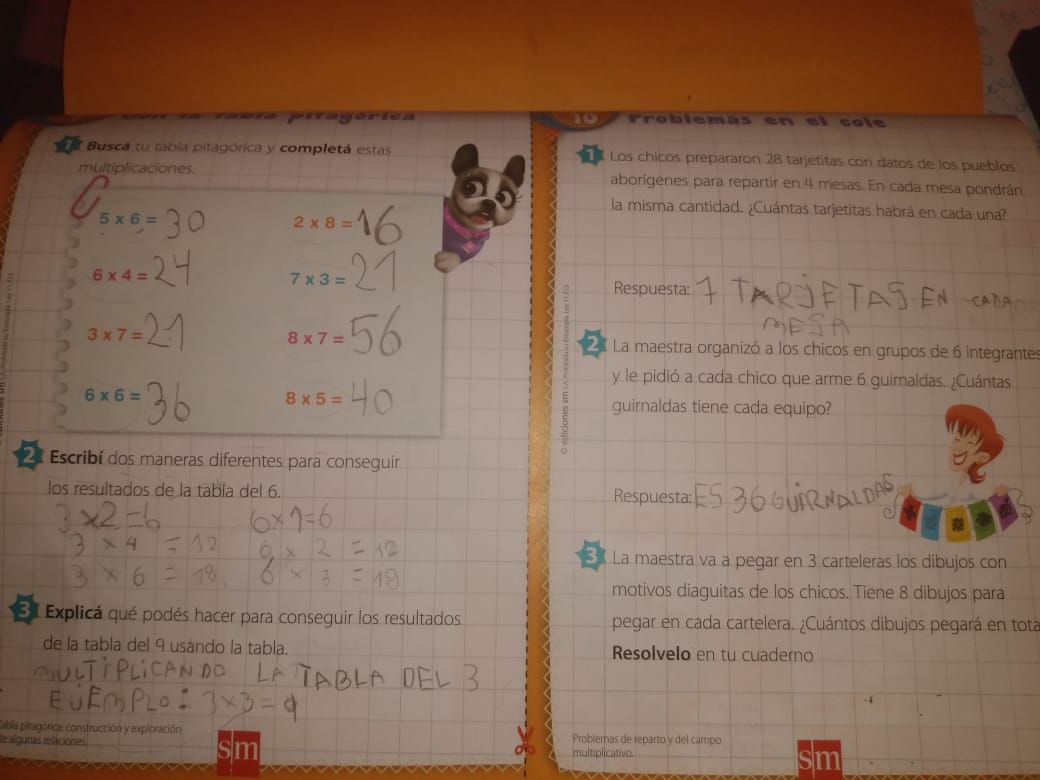 Con la tabla pitagórica
1 Buscá tu tabla pitagórica y completá estas
multiplicaciones.
5 x 6 = 30
2 x 8 = 16
6 x 4 = 24
7 x 3 = 21
3 x 7 = 21
8 x 7 = 56
6 x 6 = 36
8 x 5 = 40
2 Escribí dos maneras diferentes para conseguir
los resultados de la tabla del 6.
3 x 2 = 6
6 x 1 = 6
3 x 4 = 12
6 x 2 = 12
3 x 6 = 18
6 x 3 = 18
3 Explicá qué podés hacer para conseguir los resultados
de la tabla del 9 usando la tabla.
MULTIPLICANDO LA TABLA DEL 3
EJEMPLO: 3x3=9
Tabla pitagórica: construcción y exploración
de algunas relaciones.
sm
10 Problemas en el cole
1 Los chicos prepararon 28 tarjetitas con datos de los pueblos
aborígenes para repartir en 4 mesas. En cada mesa pondrán
la misma cantidad. ¿Cuántas tarjetitas habrá en cada una?
Respuesta: 7 TARJETAS EN CADA
MESA
2 La maestra organizó a los chicos en grupos de 6 integrantes
y le pidió a cada chico que arme 6 guirnaldas. ¿Cuántas
guirnaldas tiene cada equipo?
Respuesta: ES 36 GUIRNALDAS
3 La maestra va a pegar en 3 carteleras los dibujos con
motivos diaguitas de los chicos. Tiene 8 dibujos para
pegar en cada cartelera. ¿Cuántos dibujos pegará en tota
Resolvelo en tu cuaderno
Problemas de reparto y del campo
multiplicativo.
sm
© ediciones sm S.A. Prohibida su fotocopia. Ley 11.723